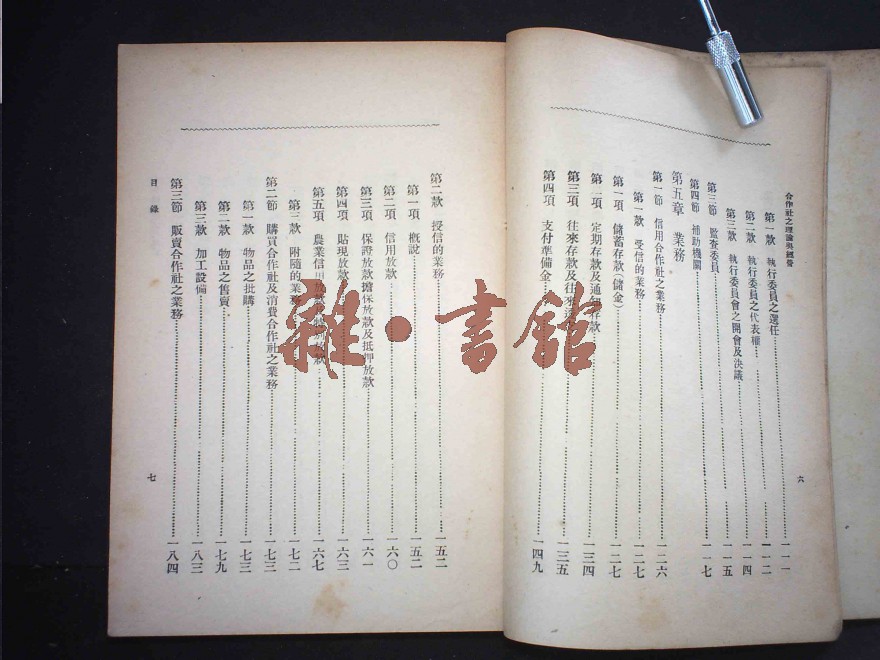 合作社之理論與經營
六
第一款 執行委員之選任 一一一
第二款 執行委員之代表權 一一二
第三款 執行委員會之開會及決議 一一四
第三節 監查委員 一一五
第四節 補助機關 一一七
第五章 業務
第一節 信用合作社之業務 一二六
第一款 受信的業務 一二七
第一項 儲蓄存款(儲金) 一二七
第二項 定期存款及通知存款 一三四
第三項 往來存款及往來透 一三五
第四項 支付準備金 一四九
第二款 授信的業務 一五二
第一項 概說 一五二
第二項 信用放款 一六〇
第三項 保證放款擔保放款及抵押放款 一六一
第四項 貼現放款 一六三
第五項 農業信用放款 放款 一六七
第三款 附隨的業務 一七二
第二節 購買合作社及消費合作社之業務 一七三
第一款 物品之批購 一七三
第二款 物品之售賣 一七九
第三款 加工設備 一八三
第三節 販賣合作社之業務 一八四
目錄
七
雜·書館